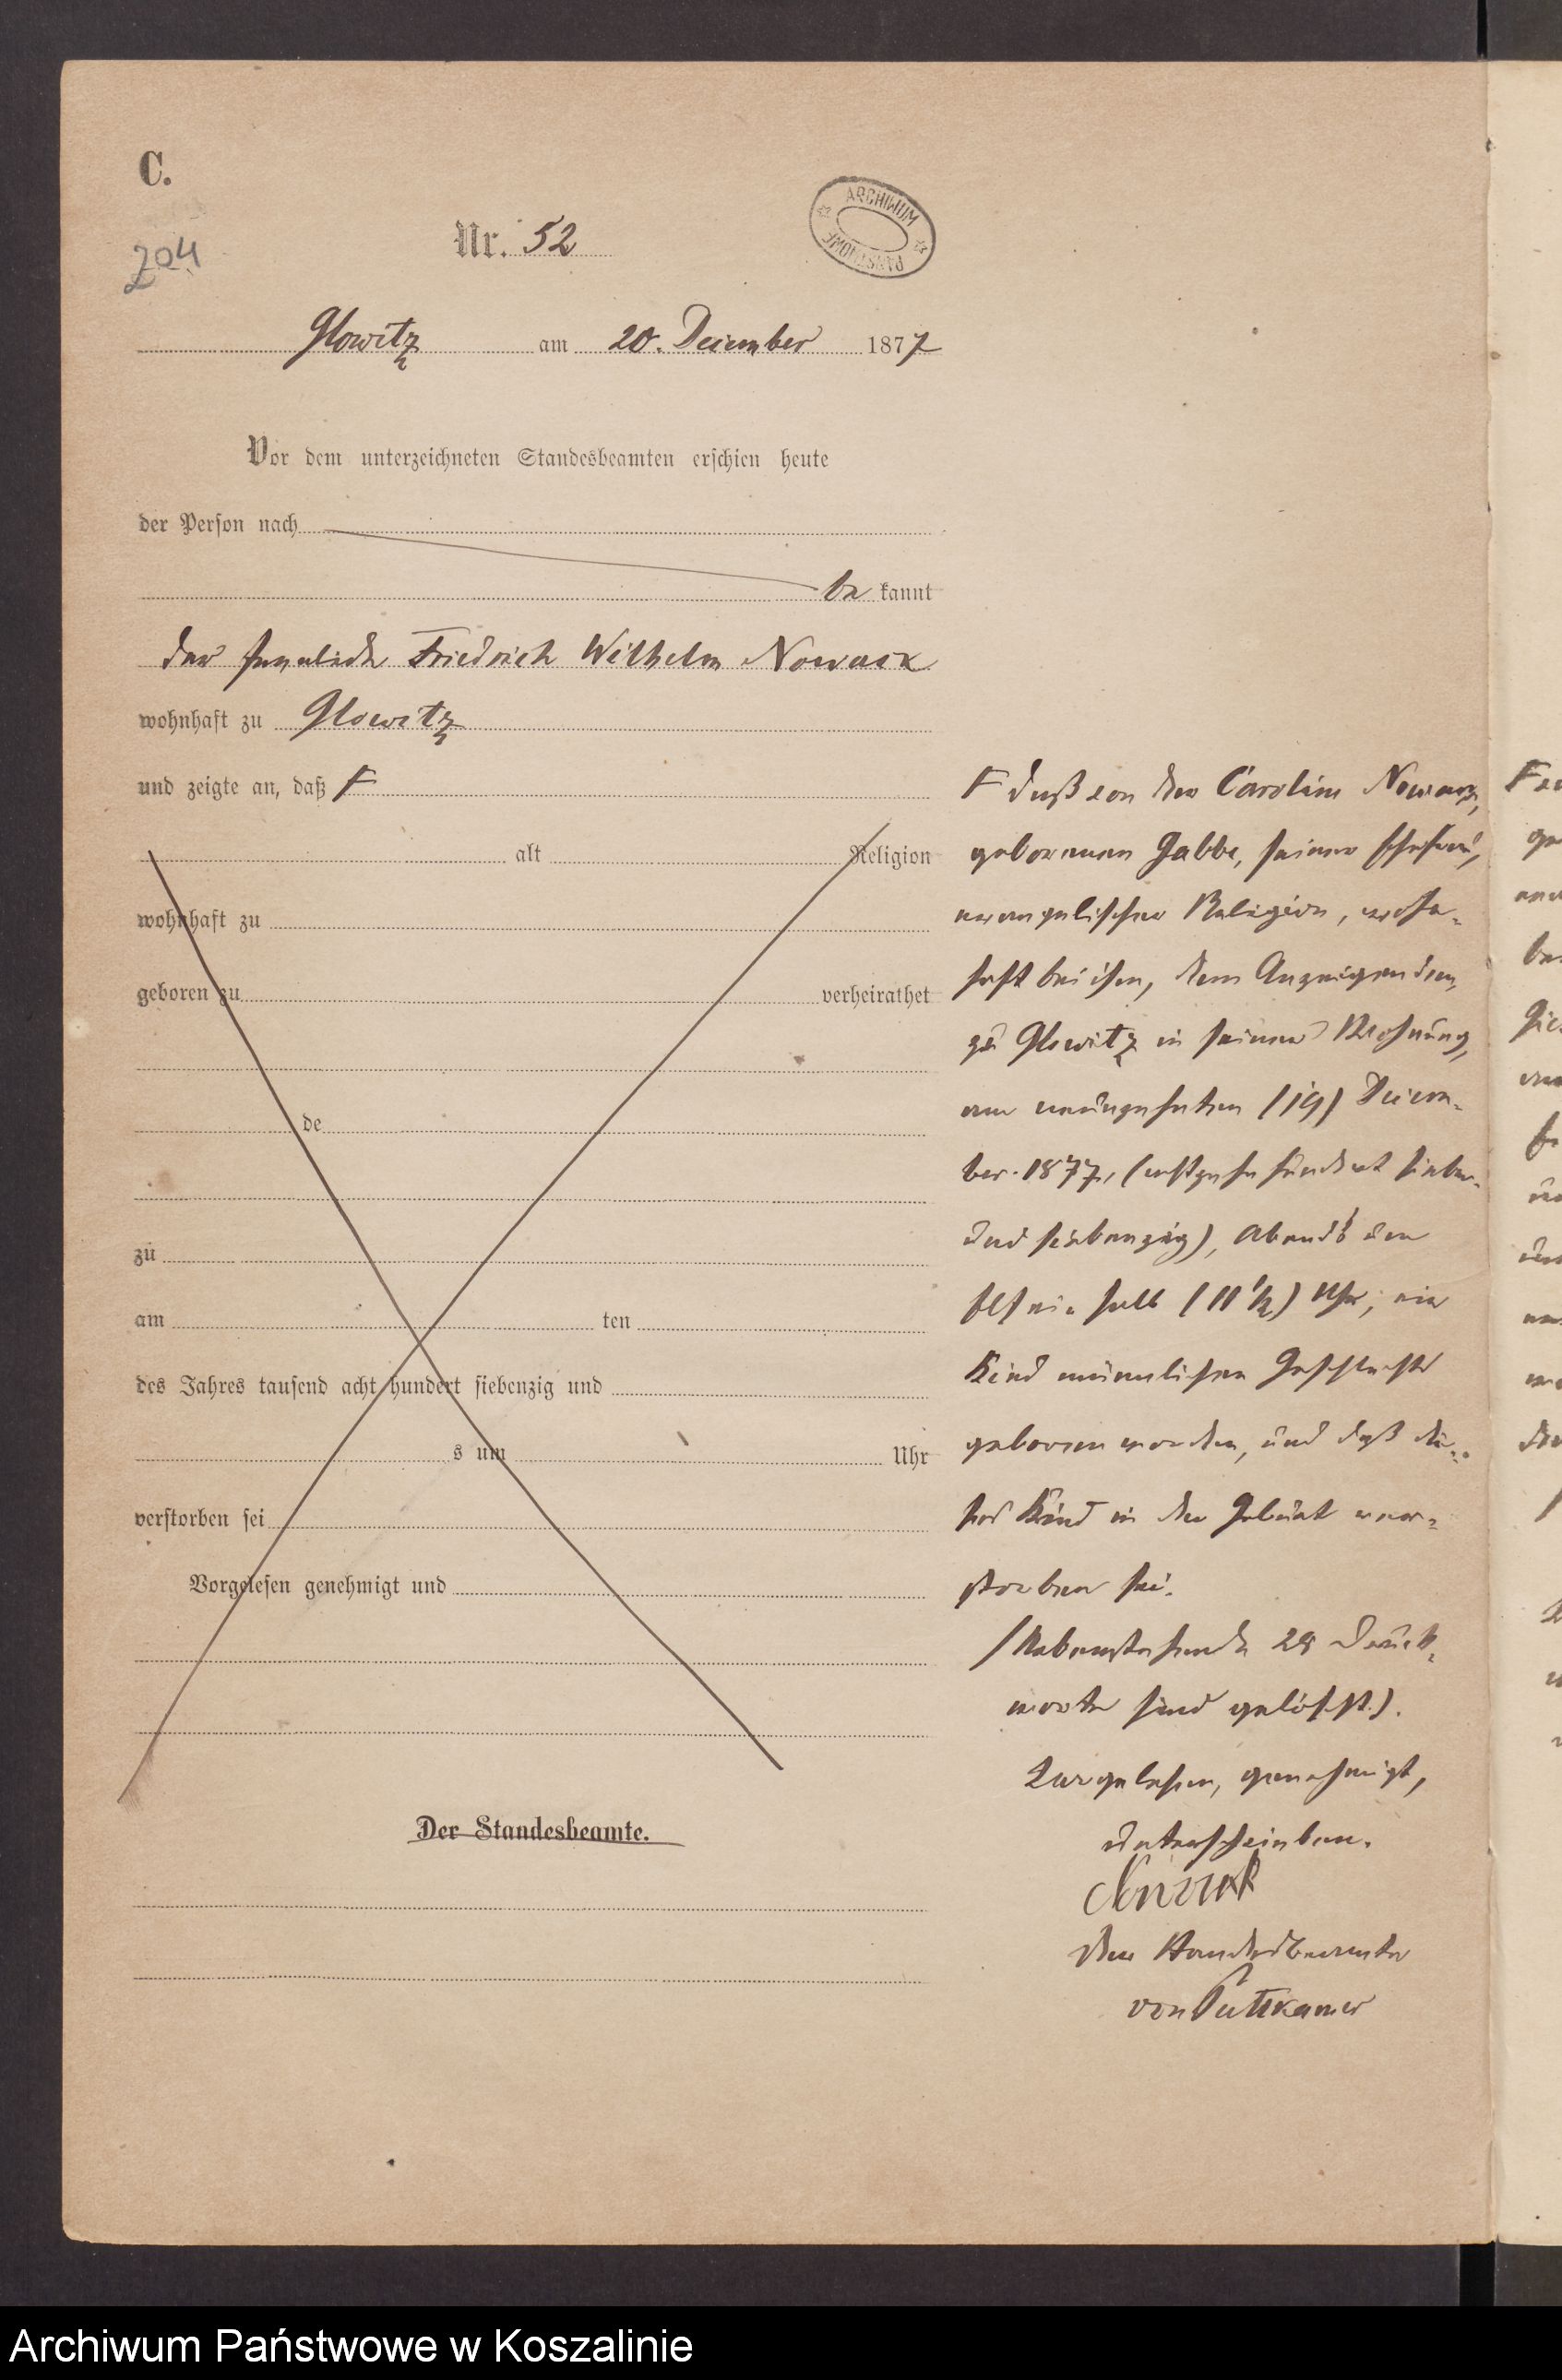 C.
204
Nr. 52
ARCHIWUM PAŃSTWOWE
Glowitz am 20. December 1877
Vor dem unterzeichneten Standesbeamten erschien heute
der Person nach
be kannt
der Friedrich Wilhelm Nowack
wohnhaft zu Glowitz
und zeigte an, daß F
alt Religion
wohnhaft zu
geboren zu verheirathet
de
zu
am ten
des Jahres tausend acht hundert siebenzig und
s um Uhr
verstorben sei
Vorgelesen genehmigt und
Der Standesbeamte.
F daß von der Caroline Nowack,
geborenen Gabbe, seiner Ehefrau,
evangelischer Religion, wohn-
haft bei ihm, dem Anzeigenden,
zu Glowitz in seiner Wohnung,
am neunzehnten (19) Decem-
ber 1877, (achtzehnhundert sieben
und siebenzig), Abends um
elf ein halb (11 1/2) Uhr, ein
Kind männlichen Geschlechts
geboren worden, und daß die-
ses Kind in der Geburt ver-
storben sei.
(Nebenstehende 28 Druck-
worte sind gelöscht.)
Vorgelesen, genehmigt,
unterschrieben.
Nowack
Der Standesbeamte
von Puttkamer
Archiwum Państwowe w Koszalinie